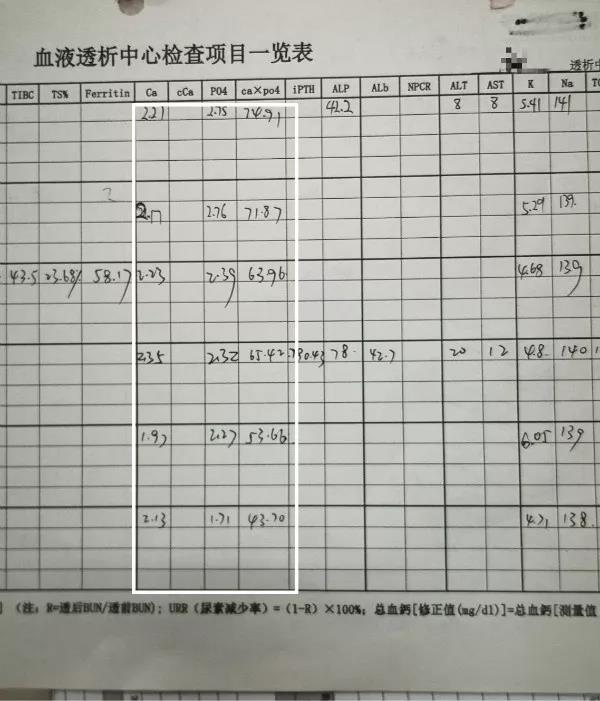 血液透析中心检查项目一览表
透析中
TIBC TS% Ferritin Ca cCa PO4 ca×po4 iPTH ALP ALb NPCR ALT AST K Na
2.21 2.75 74.91 42.2 8 8 5.41 141
2.17 2.76 71.87 5.29 139.
43.5 23.68% 58.17 2.23 2.39 63.96 4.68 139
2.35 2.32 65.42 790.43 78. 42.7 20 12 4.8. 140
1.97 2.27 53.66 6.05 139
2.13 1.71 43.70 4.71 138.
(注: R=透后BUN/透前BUN); URR (尿素减少率) = (1-R) ×100%; 总血鈣[修正值(mg/dl)]=总血鈣[测量值